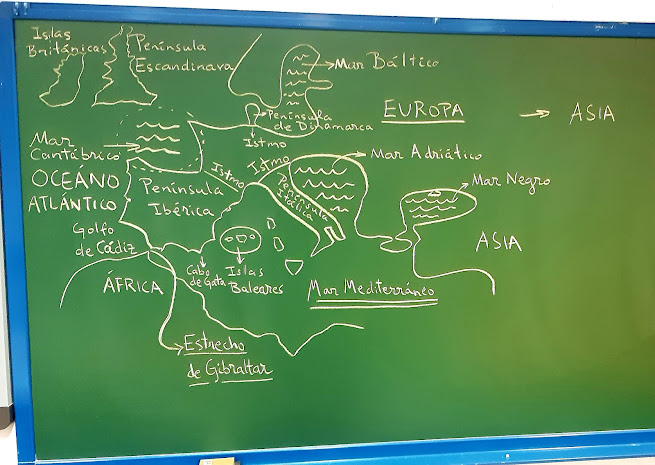 Islas
Británicas
Península
Escandinava
Mar Báltico
Península
de Dinamarca
Istmo
EUROPA
ASIA
Mar
Cantábrico
OCEÁNO
ATLÁNTICO
Península
Ibérica
Istmo
Istmo
Península
Itálica
Mar Adriático
Mar Negro
ASIA
Golfo
de Cádiz
ÁFRICA
Cabo
de Gata
Islas
Baleares
Mar Mediterráneo
Estrecho
de Gibraltar